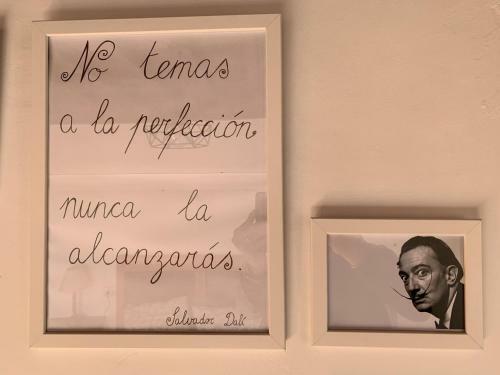 No temas
a la perfección,
nunca la
alcanzarás.
Salvador Dalí